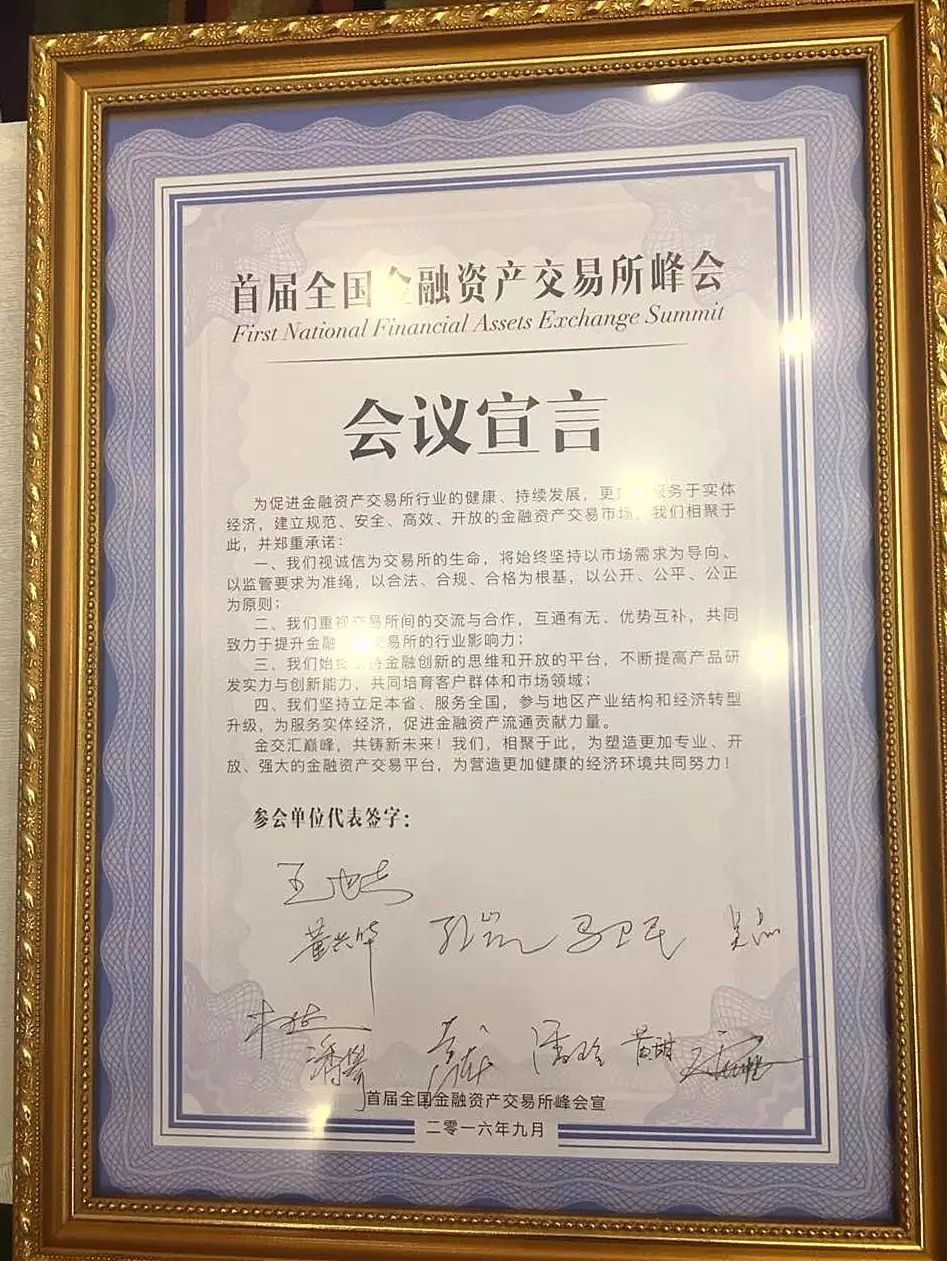 首届全国金融资产交易所峰会
First National Financial Assets Exchange Summit
会议宣言
为促进金融资产交易所行业的健康、持续发展，更 服务于实体
经济，建立规范、安全、高效、开放的金融资产交易市场，我们相聚于
此，并郑重承诺：
一、我们视诚信为交易所的生命，将始终坚持以市场需求为导向、
以监管要求为准绳，以合法、合规、合格为根基，以公开、公平、公正
为原则；
二、我们重视交易所间的交流与合作，互通有无、优势互补，共同
致力于提升金融 交易所的行业影响力；
三、我们始终坚持金融创新的思维和开放的平台，不断提高产品研
发实力与创新能力，共同培育客户群体和市场领域；
四、我们坚持立足本省、服务全国，参与地区产业结构和经济转型
升级，为服务实体经济，促进金融资产流通贡献力量。
金交汇巅峰，共铸新未来！我们，相聚于此，为塑造更加专业、开
放、强大的金融资产交易平台，为营造更加健康的经济环境共同努力！
参会单位代表签字：
董兴华 马卫民
黄甜
首届全国金融资产交易所峰会宣
二零一六年九月